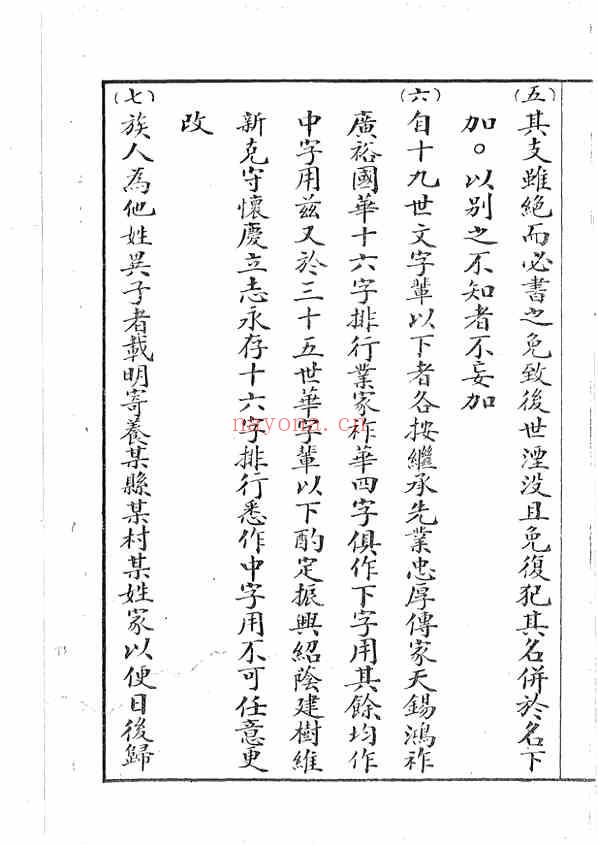 (五)其支雖絕而必書之免致後世湮没且免復犯其名併於名下
加○以别之不知者不妄加
(六)自十九世文字輩以下者各按繼承先業忠厚傳家天錫鴻祚
廣裕國華十六字排行業家祚華四字俱作下字用其餘均作
中字用兹又於三十五世華字輩以下酌定振興紹蔭建樹維
新克守懷慶立志永存十六字排行悉作中字用不可任意更
改
(七)族人為他姓異子者載明寄養某縣某村某姓家以便日後歸
nayona.cn